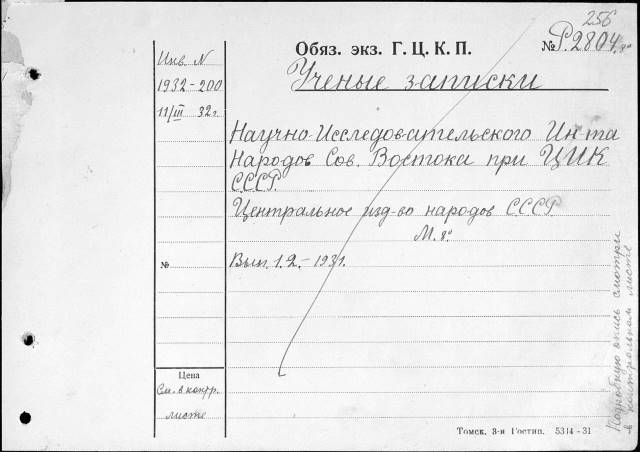 256
Обяз. экз. Г. Ц. К. П.
№ Р.2804 8°
Ученые записки
Инв. N
1932-200
11/III 32г.
Научно-Исследовательского Ин-та
Народов Сов. Востока при ЦИК
СССР.
Центральное изд-во народов СССР
М. 8°
№
Вып. 1.2.-1931.
Цена
См. в контр.
листе
Подробную опись смотри
в контрольном листе
Томск. 3-я Гостип. 5314-31